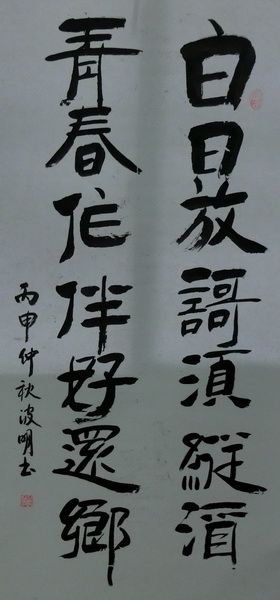 白日放謌須縱酒
青春作伴好還鄉
丙申仲秋波明书